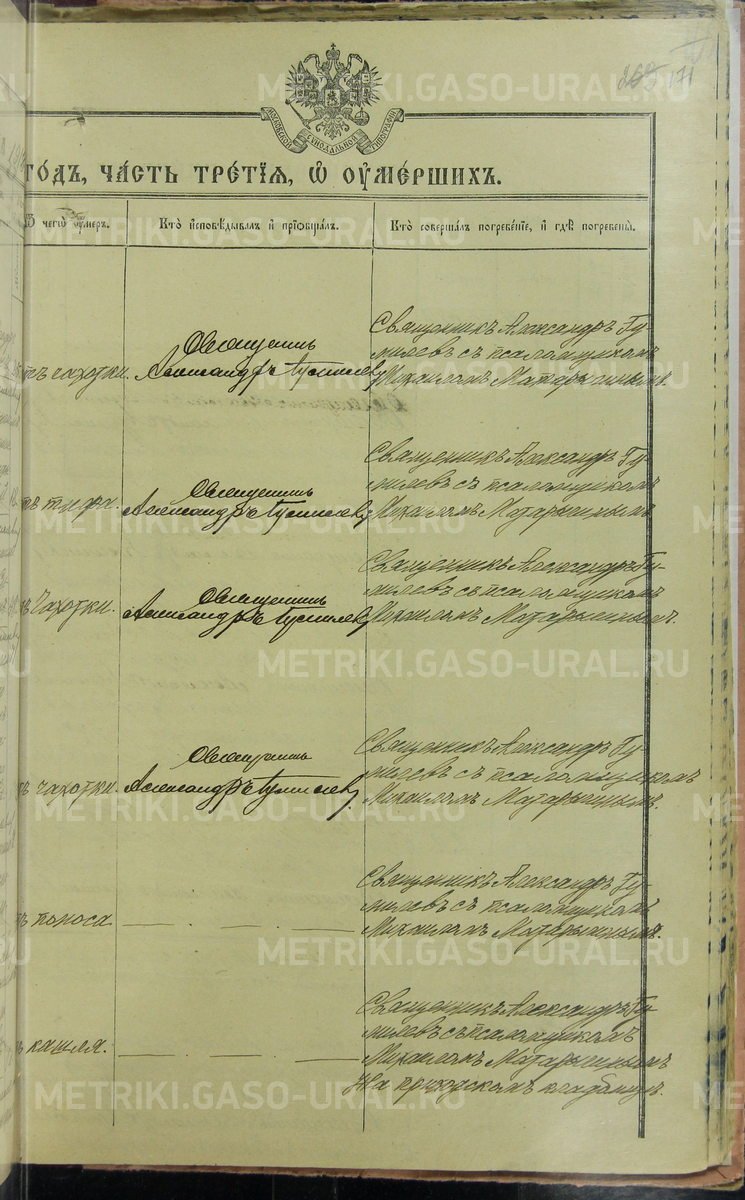 171
МОСКОВСКОЙ СѴНОДАЛЬНОЙ ТИПОГРАФІИ
ГОДЪ, ЧАСТЬ ТРЕТІЯ, Ѡ ОУМЕРШИХЪ.
Ѿ чегѡ оумеръ.
Кто исповѣдывалъ и пріобщалъ.
Кто совершалъ погребеніе, и гдѣ погребены.
чахотки.
Священникъ
Александръ
Священникъ Александръ Гу-
милевъ съ псаломщикомъ
Михаиломъ Матарыгинымъ.
тифа.
Священникъ
Александръ Гумилевъ
Священникъ Александръ Гу-
милевъ съ псаломщикомъ
Михаиломъ Матарыгинымъ
Чахотки.
Священникъ
Александръ Гумилевъ
Священникъ Александръ Гу-
милевъ съ псаломщикомъ
Михаиломъ Матарыгинымъ.
чахотки.
Священникъ
Александръ Гумилевъ
Священникъ Александръ Гу-
милевъ съ псаломщикомъ
Михаиломъ Матарыгинымъ.
поноса
Священникъ Александръ Гу-
милевъ съ псаломщикомъ
Михаиломъ Матарыгинымъ.
кашля.
Священникъ Александръ Гу-
милевъ съ псаломщикомъ
Михаиломъ Матарыгинымъ
На приходскомъ кладбищѣ.
METRIKI.GASO-URAL.RU